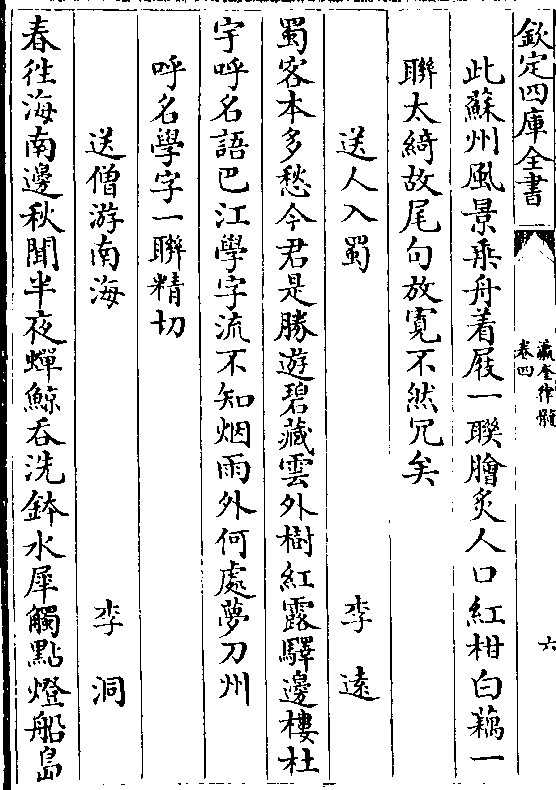 欽定四庫全書
瀛奎律髓
卷四
六
此蘇州風景乗舟着屐一聨膾炙人口紅柑白藕一
聨太綺故尾句放寛不然冗矣
送人入蜀 李逺
蜀客本多愁今君是勝遊碧藏雲外樹紅露驛邊樓杜
宇呼名語巴江學字流不知烟雨外何處夢刀州
呼名學字一聨精切
送僧游南海 李洞
春徃海南邊秋聞半夜蟬鯨吞洗鉢水犀觸㸃燈船島